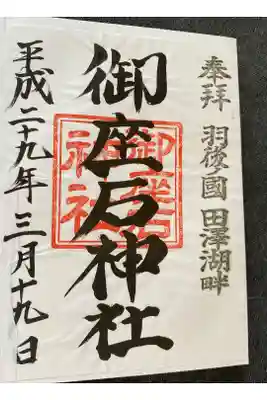 奉拝 羽後ノ國 田澤湖畔
御座石神社
御座石
神社
平成二十九年 三月十九日